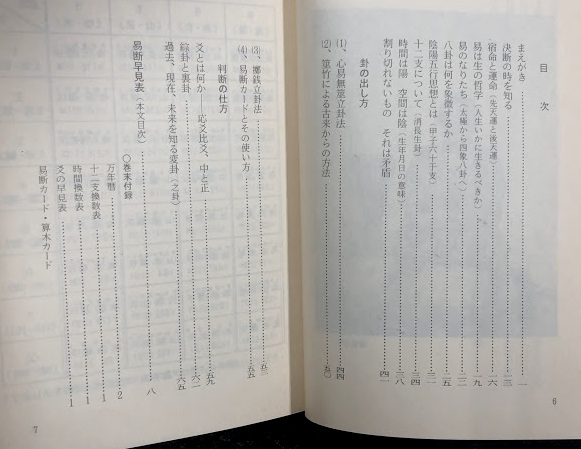 目次
まえがき……一
決断の時を知る……一三
宿命と運命（先天運と後天運）……一六
易は生の哲学（人生いかに生きるべきか）……一九
易のなりたち（太極から四象八卦へ）……二二
八卦は何を象徴するか……二五
陰陽五行思想とは（甲子六十干支）……三一
十二支について（消長生卦）……三四
時間は陽　空間は陰（生年月日の意味）……三八
割り切れないもの　それは矛盾……四一
卦の出し方
(1)、心易無筮立卦法……四四
(2)、筮竹による古来からの方法……五〇
6
(3)、擲銭立卦法……五三
(4)、易断カードとその使い方……五五
判断の仕方
爻とは何か——応爻比爻、中と正……五九
綜卦と裏卦……六二
過去、現在、未来を知る変卦（之卦）……六五
易断早見表（本文目次）……八
〇巻末付録
万年暦……2
十二支換数表……1
時間換数表……1
爻の早見表……1
易断カード・算木カード
7